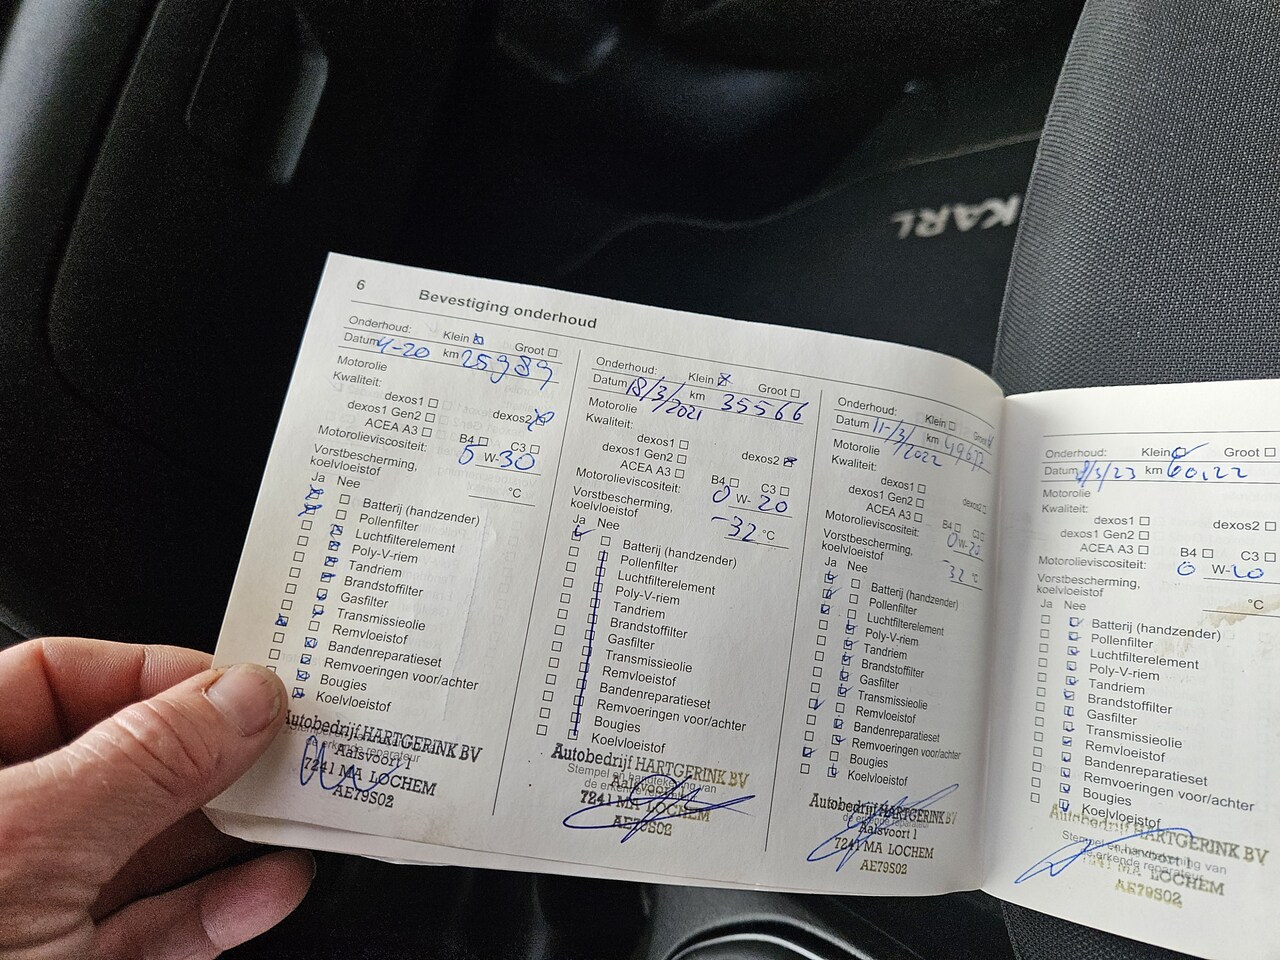 KARL
6 Bevestiging onderhoud
Onderhoud: Klein Groot
Datum 4-20 km 25989
Motorolie
Kwaliteit:
dexos1
dexos1 Gen2 dexos2
ACEA A3 B4 C3
Motorolieviscositeit: 0 W-30
Vorstbescherming,
koelvloeistof °C
Ja Nee
Batterij (handzender)
Pollenfilter
Luchtfilterelement
Poly-V-riem
Tandriem
Brandstoffilter
Gasfilter
Transmissieolie
Remvloeistof
Bandenreparatieset
Remvoeringen voor/achter
Bougies
Koelvloeistof
Autobedrijf HARTGERINK BV
Aalsvoort 1
7241 MA LOCHEM
AE79S02
Onderhoud: Klein Groot
Datum 18/3/2021 km 35566
Motorolie
Kwaliteit:
dexos1
dexos1 Gen2 dexos2
ACEA A3 B4 C3
Motorolieviscositeit: 0 W-20
Vorstbescherming,
koelvloeistof -32 °C
Ja Nee
Batterij (handzender)
Pollenfilter
Luchtfilterelement
Poly-V-riem
Tandriem
Brandstoffilter
Gasfilter
Transmissieolie
Remvloeistof
Bandenreparatieset
Remvoeringen voor/achter
Bougies
Koelvloeistof
Autobedrijf HARTGERINK BV
Stempel en handtekening van
de erkende reparateur
Aalsvoort 1
7241 MA LOCHEM
AE79S02
Onderhoud: Klein Groot
Datum 11-/3/2022 km
Motorolie
Kwaliteit:
dexos1
dexos1 Gen2
ACEA A3 B4 C3
Motorolieviscositeit: 0 W-20
Vorstbescherming,
koelvloeistof -32 °C
Ja Nee
Batterij (handzender)
Pollenfilter
Luchtfilterelement
Poly-V-riem
Tandriem
Brandstoffilter
Gasfilter
Transmissieolie
Remvloeistof
Bandenreparatieset
Remvoeringen voor/achter
Bougies
Koelvloeistof
Autobedrijf HARTGERINK BV
de erkende reparateur
Aalsvoort 1
7241 MA LOCHEM
AE79S02
Onderhoud: Klein Groot
Datum 8/3/23 km 60122
Motorolie
Kwaliteit:
dexos1 dexos2
dexos1 Gen2
ACEA A3 B4 C3
Motorolieviscositeit: 0 W-20
Vorstbescherming,
koelvloeistof °C
Ja Nee
Batterij (handzender)
Pollenfilter
Luchtfilterelement
Poly-V-riem
Tandriem
Brandstoffilter
Gasfilter
Transmissieolie
Remvloeistof
Bandenreparatieset
Remvoeringen voor/achter
Bougies
Koelvloeistof
Autobedrijf HARTGERINK BV
Stempel en handtekening van
de erkende reparateur
7241 MA LOCHEM
AE79S02